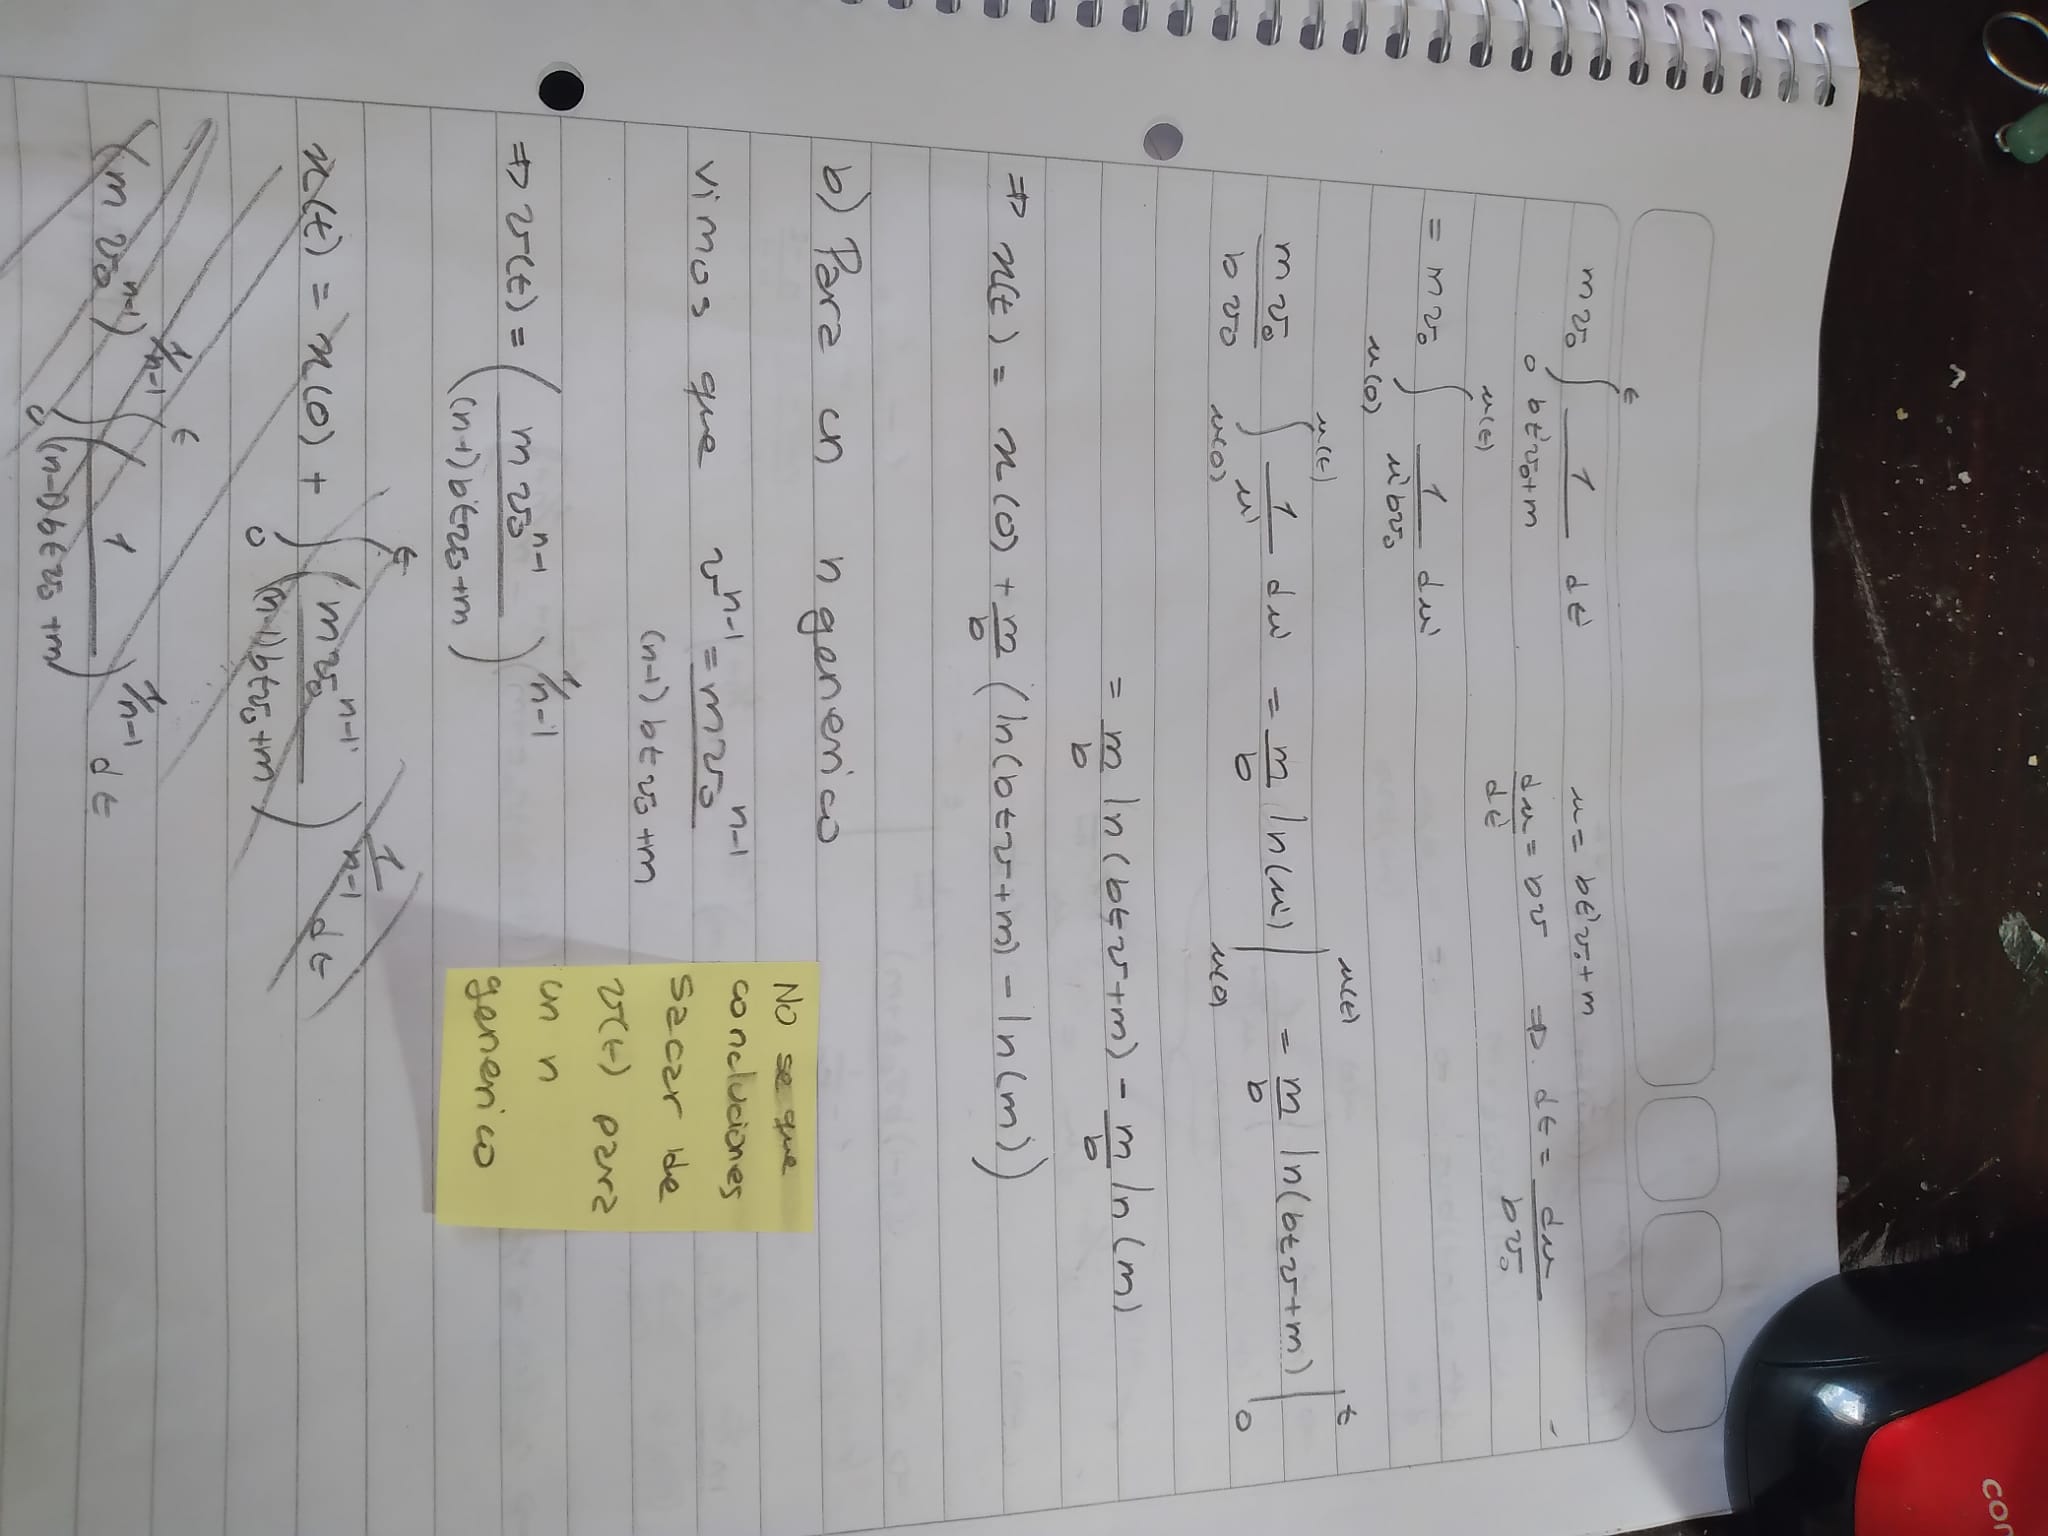 m v₀ ∫₀ᵗ 1/(bt'v₀+m) dt' u = bt'v₀+m
du/dt' = bv ⇒ dt' = du/bv₀
= m v₀ ∫_{u(0)}^{u(t)} 1/(u'bv₀) du'
m v₀/b v₀ ∫_{u(0)}^{u(t)} 1/u' du' = m/b ln(u') |_{u(0)}^{u(t)} = m/b ln(btv+m) |₀ᵗ
= m/b ln(btv+m) - m/b ln(m)
⇒ x(t) = x(0) + m/b (ln(btv+m) - ln(m))
b) Para un n generico
vimos que v^{n-1} = m v₀^{n-1}/((n-1)btv₀+m)
⇒ v(t) = (m v₀^{n-1}/((n-1)btv₀+m))^{1/n-1}
x(t) = x(0) + ∫₀ᵗ (m v₀^{n-1}/((n-1)btv₀+m))^{1/n-1} dt
(m v₀^{n-1})^{1/n-1} ∫₀ᵗ (1/((n-1)btv₀+m))^{1/n-1} dt
No se que
concluciones
sacar de
v(t) para
un n
generico
con